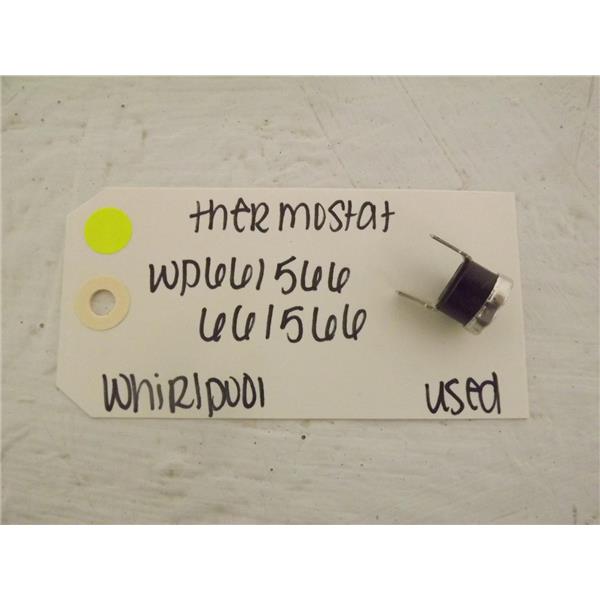 thermostat
WP661566
661566
Whirlpool used